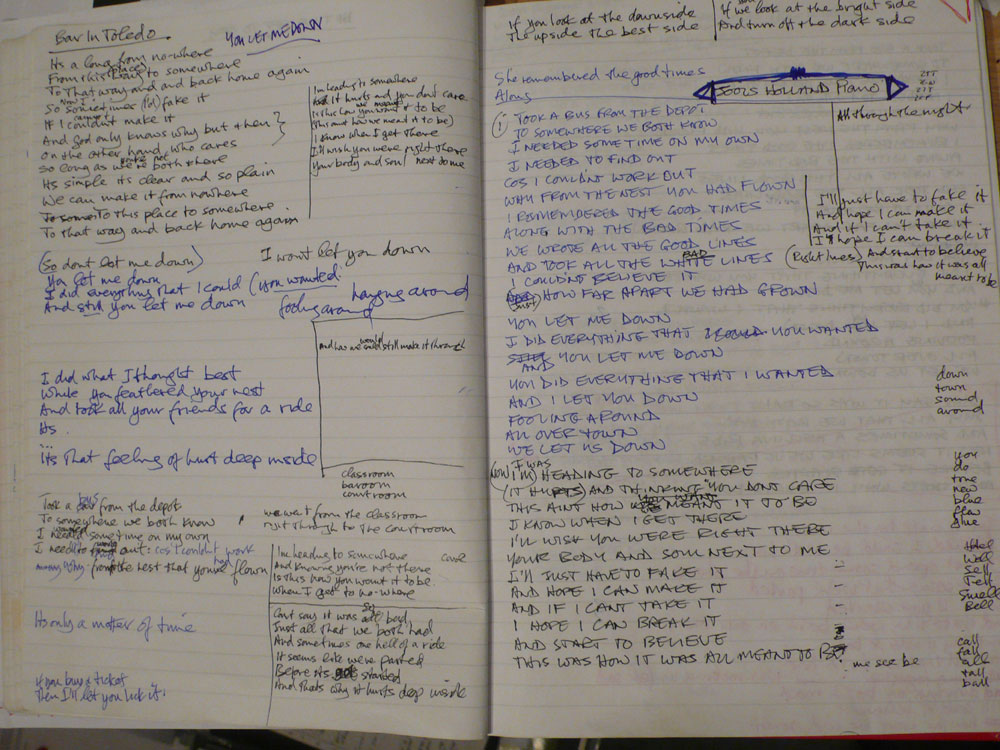 Bar In Toledo.
YOU LET ME DOWN
Its a long from no-where
From this (place) to somewhere
To that way and and back home again
So sometimes fake it
If I couldn't make it
And god only knows why but then
on the other hand, who cares
So long as we're both there
Its simple its clear and so plain
We can make it from nowhere
To some To this place to somewhere
To that way and back home again
Im leading it somewhere
And it hurts and you dont care
Is this how you want it to be
(This aint how we meant it to be)
I know when I get there
I'll wish you were right there
Your body and soul next to me
(So dont let me down)
I wont let you down
You let me down
I did everything that I could (you wanted
And still you let me down
fooling around
hanging around
And how we could would still make it through
I did what I thought best
While you feathered your nest
And took all your friends for a ride
Its
...
its that feeling of hurt deep inside
classroom
baroom
courtroom
we went from the classroom
right through to the courtroom
Took a bus from the depot
To somewhere we both know
I needed some time on my own
I need to out: cos I couldnt work
from the nest that you had flown
Im heading to somewhere
care
And knowing you're not there
Is this how you want it to be
When I get to no-where
Cant say it was all bad
Just all that we both had
And sometimes one hell of a ride
It seems like we're parted
Before its started
And thats why it hurts deep inside
Its only a matter of time
if you buy a ticket
Then I'll let you lick it!
If you look at the downside
The upside the best side
If we look at the bright side
And turn off the dark side
She remembered the good times
Along
JOOLS HOLLAND PIANO
All through the night
① TOOK A BUS FROM THE DEPOT
TO SOMEWHERE WE BOTH KNOW
I NEEDED SOME TIME ON MY OWN
I NEEDED TO FIND OUT
COS I COULDNT WORK OUT
WHY FROM THE NEST YOU HAD FLOWN
I REMEMBERED THE GOOD TIMES
ALONG WITH THE BAD TIMES
WE WROTE ALL THE GOOD LINES
AND TOOK ALL THE WHITE BAD LINES
(Right lines)
I COULDNT BELIEVE IT
(JUST) HOW FAR APART WE HAD GROWN
I'll just have to fake it
And hope I can make it
And if I can't take it
I'll hope I can break it
and start to believe
This was how it was all
meant to be
YOU LET ME DOWN
I DID EVERYTHING THAT I COULD YOU WANTED
STILL AND YOU LET ME DOWN
YOU DID EVERYTHING THAT I WANTED
AND I LET YOU DOWN
FOOLING AROUND
ALL OVER TOWN
WE LET US DOWN
down
town
sound
around
I WAS
(NOW I'M) HEADING TO SOMEWHERE
(IT HURTS) AND THINKING YOU DONT CARE
THIS AINT HOW WE YOU WANT MEANT IT TO BE
I KNOW WHEN I GET THERE
I'LL WISH YOU WERE RIGHT THERE
YOUR BODY AND SOUL NEXT TO ME
I'LL JUST HAVE TO FAKE IT
AND HOPE I CAN MAKE IT
AND IF I CANT TAKE IT
I HOPE I CAN BREAK IT
AND START TO BELIEVE
THIS WAS HOW IT WAS ALL MEANT TO BE
me see be
you
do
true
new
blue
flew
glue
Well
Sell
Tell
Smell
Bell
call
fall
all
tall
ball